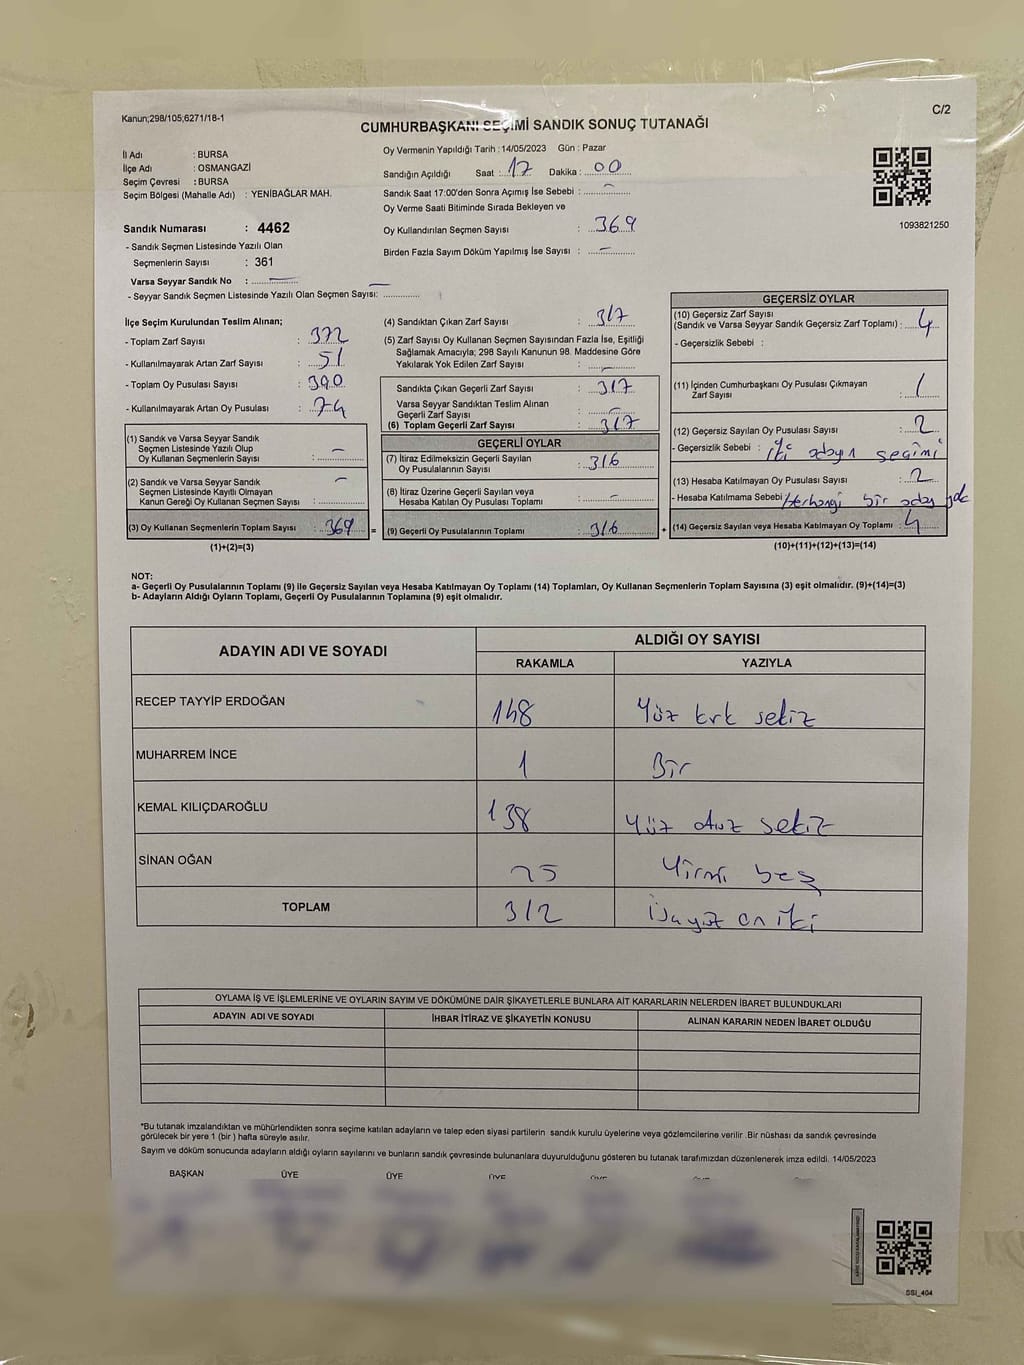 Kanun;298/105;6271/18-1
C/2
CUMHURBAŞKANI SEÇİMİ SANDIK SONUÇ TUTANAĞI
İl Adı : BURSA
İlçe Adı : OSMANGAZİ
Seçim Çevresi : BURSA
Seçim Bölgesi (Mahalle Adı) : YENİBAĞLAR MAH.
Oy Vermenin Yapıldığı Tarih : 14/05/2023 Gün : Pazar
Sandığın Açıldığı Saat : 17 Dakika : 00
Sandık Saat 17:00'den Sonra Açımış İse Sebebi : -
Oy Verme Saati Bitiminde Sırada Bekleyen ve
Oy Kullandırılan Seçmen Sayısı : 369
Birden Fazla Sayım Döküm Yapılmış İse Sayısı : -
1093821250
Sandık Numarası : 4462
- Sandık Seçmen Listesinde Yazılı Olan
Seçmenlerin Sayısı : 361
Varsa Seyyar Sandık No : -
- Seyyar Sandık Seçmen Listesinde Yazılı Olan Seçmen Sayısı: -
İlçe Seçim Kurulundan Teslim Alınan;
- Toplam Zarf Sayısı : 372
- Kullanılmayarak Artan Zarf Sayısı : 51
- Toplam Oy Pusulası Sayısı : 390
- Kullanılmayarak Artan Oy Pusulası : 74
(1) Sandık ve Varsa Seyyar Sandık
Seçmen Listesinde Yazılı Olup
Oy Kullanan Seçmenlerin Sayısı : -
(2) Sandık ve Varsa Seyyar Sandık
Seçmen Listesinde Kayıtlı Olmayan
Kanun Gereği Oy Kullanan Seçmen Sayısı : -
(3) Oy Kullanan Seçmenlerin Toplam Sayısı : 369 =
(1)+(2)=(3)
(4) Sandıktan Çıkan Zarf Sayısı : 317
(5) Zarf Sayısı Oy Kullanan Seçmen Sayısından Fazla İse, Eşitliği
Sağlamak Amacıyla; 298 Sayılı Kanunun 98. Maddesine Göre
Yakılarak Yok Edilen Zarf Sayısı : -
Sandıkta Çıkan Geçerli Zarf Sayısı : 317
Varsa Seyyar Sandıktan Teslim Alınan
Geçerli Zarf Sayısı : -
(6) Toplam Geçerli Zarf Sayısı : 317
GEÇERLİ OYLAR
(7) İtiraz Edilmeksizin Geçerli Sayılan
Oy Pusulalarının Sayısı : 316
(8) İtiraz Üzerine Geçerli Sayılan veya
Hesaba Katılan Oy Pusulası Toplamı : -
(9) Geçerli Oy Pusulalarının Toplamı : 316 +
GEÇERSİZ OYLAR
(10) Geçersiz Zarf Sayısı
(Sandık ve Varsa Seyyar Sandık Geçersiz Zarf Toplamı) : 4
- Geçersizlik Sebebi :
(11) İçinden Cumhurbaşkanı Oy Pusulası Çıkmayan
Zarf Sayısı : 1
(12) Geçersiz Sayılan Oy Pusulası Sayısı : 2
- Geçersizlik Sebebi : iki adayın seçimi
(13) Hesaba Katılmayan Oy Pusulası Sayısı : 2
- Hesaba Katılmama Sebebi : Herhangi bir aday yok
(14) Geçersiz Sayılan veya Hesaba Katılmayan Oy Toplamı : 4
(10)+(11)+(12)+(13)=(14)
NOT:
a- Geçerli Oy Pusulalarının Toplamı (9) ile Geçersiz Sayılan veya Hesaba Katılmayan Oy Toplamı (14) Toplamları, Oy Kullanan Seçmenlerin Toplam Sayısına (3) eşit olmalıdır. (9)+(14)=(3)
b- Adayların Aldığı Oyların Toplamı, Geçerli Oy Pusulalarının Toplamına (9) eşit olmalıdır.
ADAYIN ADI VE SOYADI ALDIĞI OY SAYISI
RAKAMLA YAZIYLA
RECEP TAYYİP ERDOĞAN 148 Yüz kırk sekiz
MUHARREM İNCE 1 Bir
KEMAL KILIÇDAROĞLU 138 Yüz otuz sekiz
SİNAN OĞAN 25 Yirmi beş
TOPLAM 312 Üçyüz on iki
OYLAMA İŞ VE İŞLEMLERİNE VE OYLARIN SAYIM VE DÖKÜMÜNE DAİR ŞİKAYETLERLE BUNLARA AİT KARARLARIN NELERDEN İBARET BULUNDUKLARI
ADAYIN ADI VE SOYADI İHBAR İTİRAZ VE ŞİKAYETİN KONUSU ALINAN KARARIN NEDEN İBARET OLDUĞU
*Bu tutanak imzalandıktan ve mühürlendikten sonra seçime katılan adayların ve talep eden siyasi partilerin sandık kurulu üyelerine veya gözlemcilerine verilir .Bir nüshası da sandık çevresinde
görülecek bir yere 1 (bir ) hafta süreyle asılır.
Sayım ve döküm sonucunda adayların aldığı oyların sayılarını ve bunların sandık çevresinde bulunanlara duyurulduğunu gösteren bu tutanak tarafımızdan düzenlenerek imza edildi. 14/05/2023
BAŞKAN ÜYE ÜYE ÜYE ÜYE
SSI_404